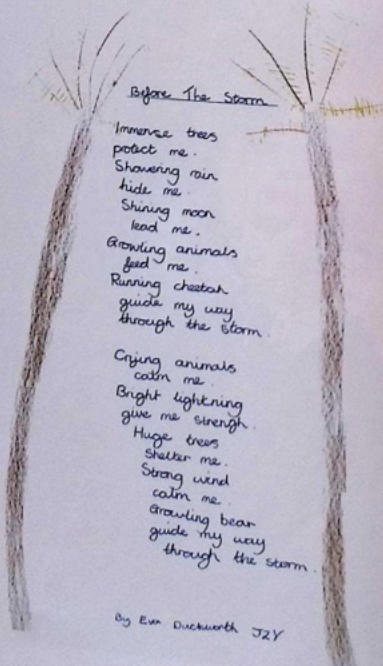 Before The Storm
Immense trees
protect me.
Showering rain
hide me.
Shining moon
lead me.
Growling animals
feed me.
Running cheetah
guide my way
through the storm.
Crying animals
calm me.
Bright lightning
give me strengh.
Huge trees
shelter me.
Strong wind
calm me.
Growling bear
guide my way
through the storm.
By Eva Duckworth JZY